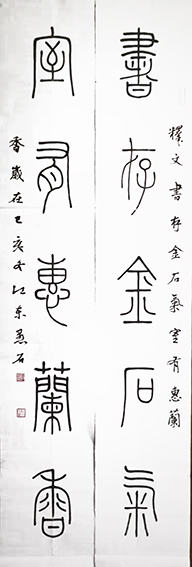 書存金石氣
室有惠蘭香
釋文書存金石氣室有惠蘭
香歲在己亥冬江東愚石